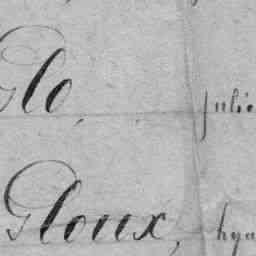 Glo, julie
Gloux, hya